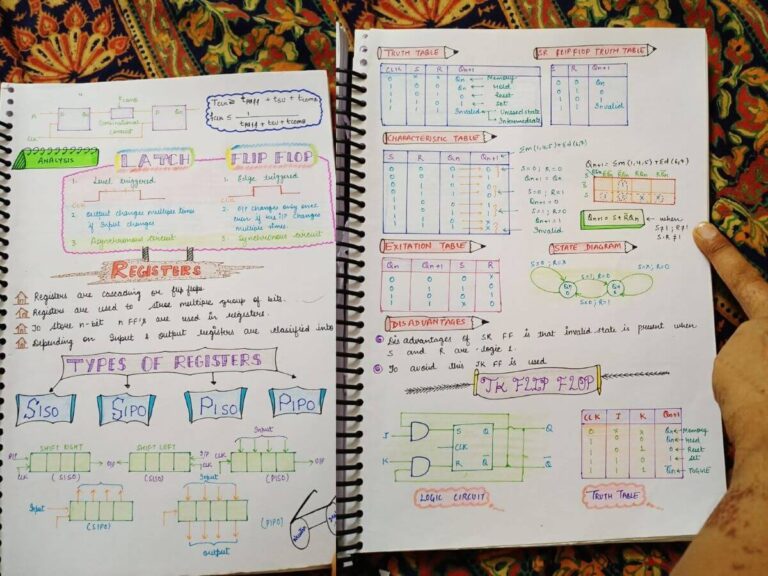 tcomb
D Qn
Combinational
Circuit
D Qn
A
CLK
tpdff + tsu + tcomb
1
tpdff + tsu + tcomb
ANALYSIS
LATCH
FLIP FLOP
1. Level triggered
CLK
2. Output changes multiple times
if Input changes
3. Asynchronous circuit
1. Edge triggered
2. O/P changes only once
even if the I/P changes
multiple times.
3. Synchronous circuit
REGISTERS
Registers are cascading or flip flops.
Registers are used to store multiple group of bits.
To store n-bit n FF's are used in registers.
Depending on Input & output registers are classified into
TYPES OF REGISTERS
SISO
SIPO
PISO
PIPO
SHIFT RIGHT
CLK
O/P
(SISO)
SHIFT LEFT
I/P
CLK
(SISO)
Input
CLK
O/P
(PISO)
Input
(SIPO)
Input
output
(PIPO)
TRUTH TABLE
CLK S R Qn+1
0 X X Qn Memory
1 0 0 Qn Hold
1 0 1 0 Reset
1 1 0 1 Set
1 1 1 Invalid Unused state
Intermediate
SR FLIP FLOP TRUTH TABLE
S R Qn+1
0 0 Qn
0 1 0
1 0 1
1 1 Invalid
CHARACTERISTIC TABLE
S R Qn Qn+1
0 0 0 0
0 0 1 1
0 1 0 0
0 1 1 0
1 0 0 1
1 0 1 1
1 1 0 X
1 1 1 X
S=0; R=0
Qn+1 = Qn
S=0; R=1
Qn+1 = 0
S=1; R=0
Qn+1 = 1
Invalid
when
S≠1; R≠1
S.R≠1
EXITATION TABLE
Qn Qn+1 S R
0 0 0 X
0 1 1 0
1 0 0 1
1 1 X 0
STATE DIAGRAM
S=0; R=X
S=1; R=0
S=X; R=0
S=0; R=1
DISADVANTAGES
Dis advantages of SR FF is that invalid state is present when
S and R are logic 1.
To avoid this JK FF is used
JK FLIP FLOP
J
K
S Q
CLK
R Q̅
Q
Q̅
LOGIC CIRCUIT
CLK J K Qn+1
0 X X Qn Memory
1 0 0 Qn Held
1 0 1 0 Reset
1 1 0 1 Set
1 1 1 Q̅n TOGGLE
TRUTH TABLE